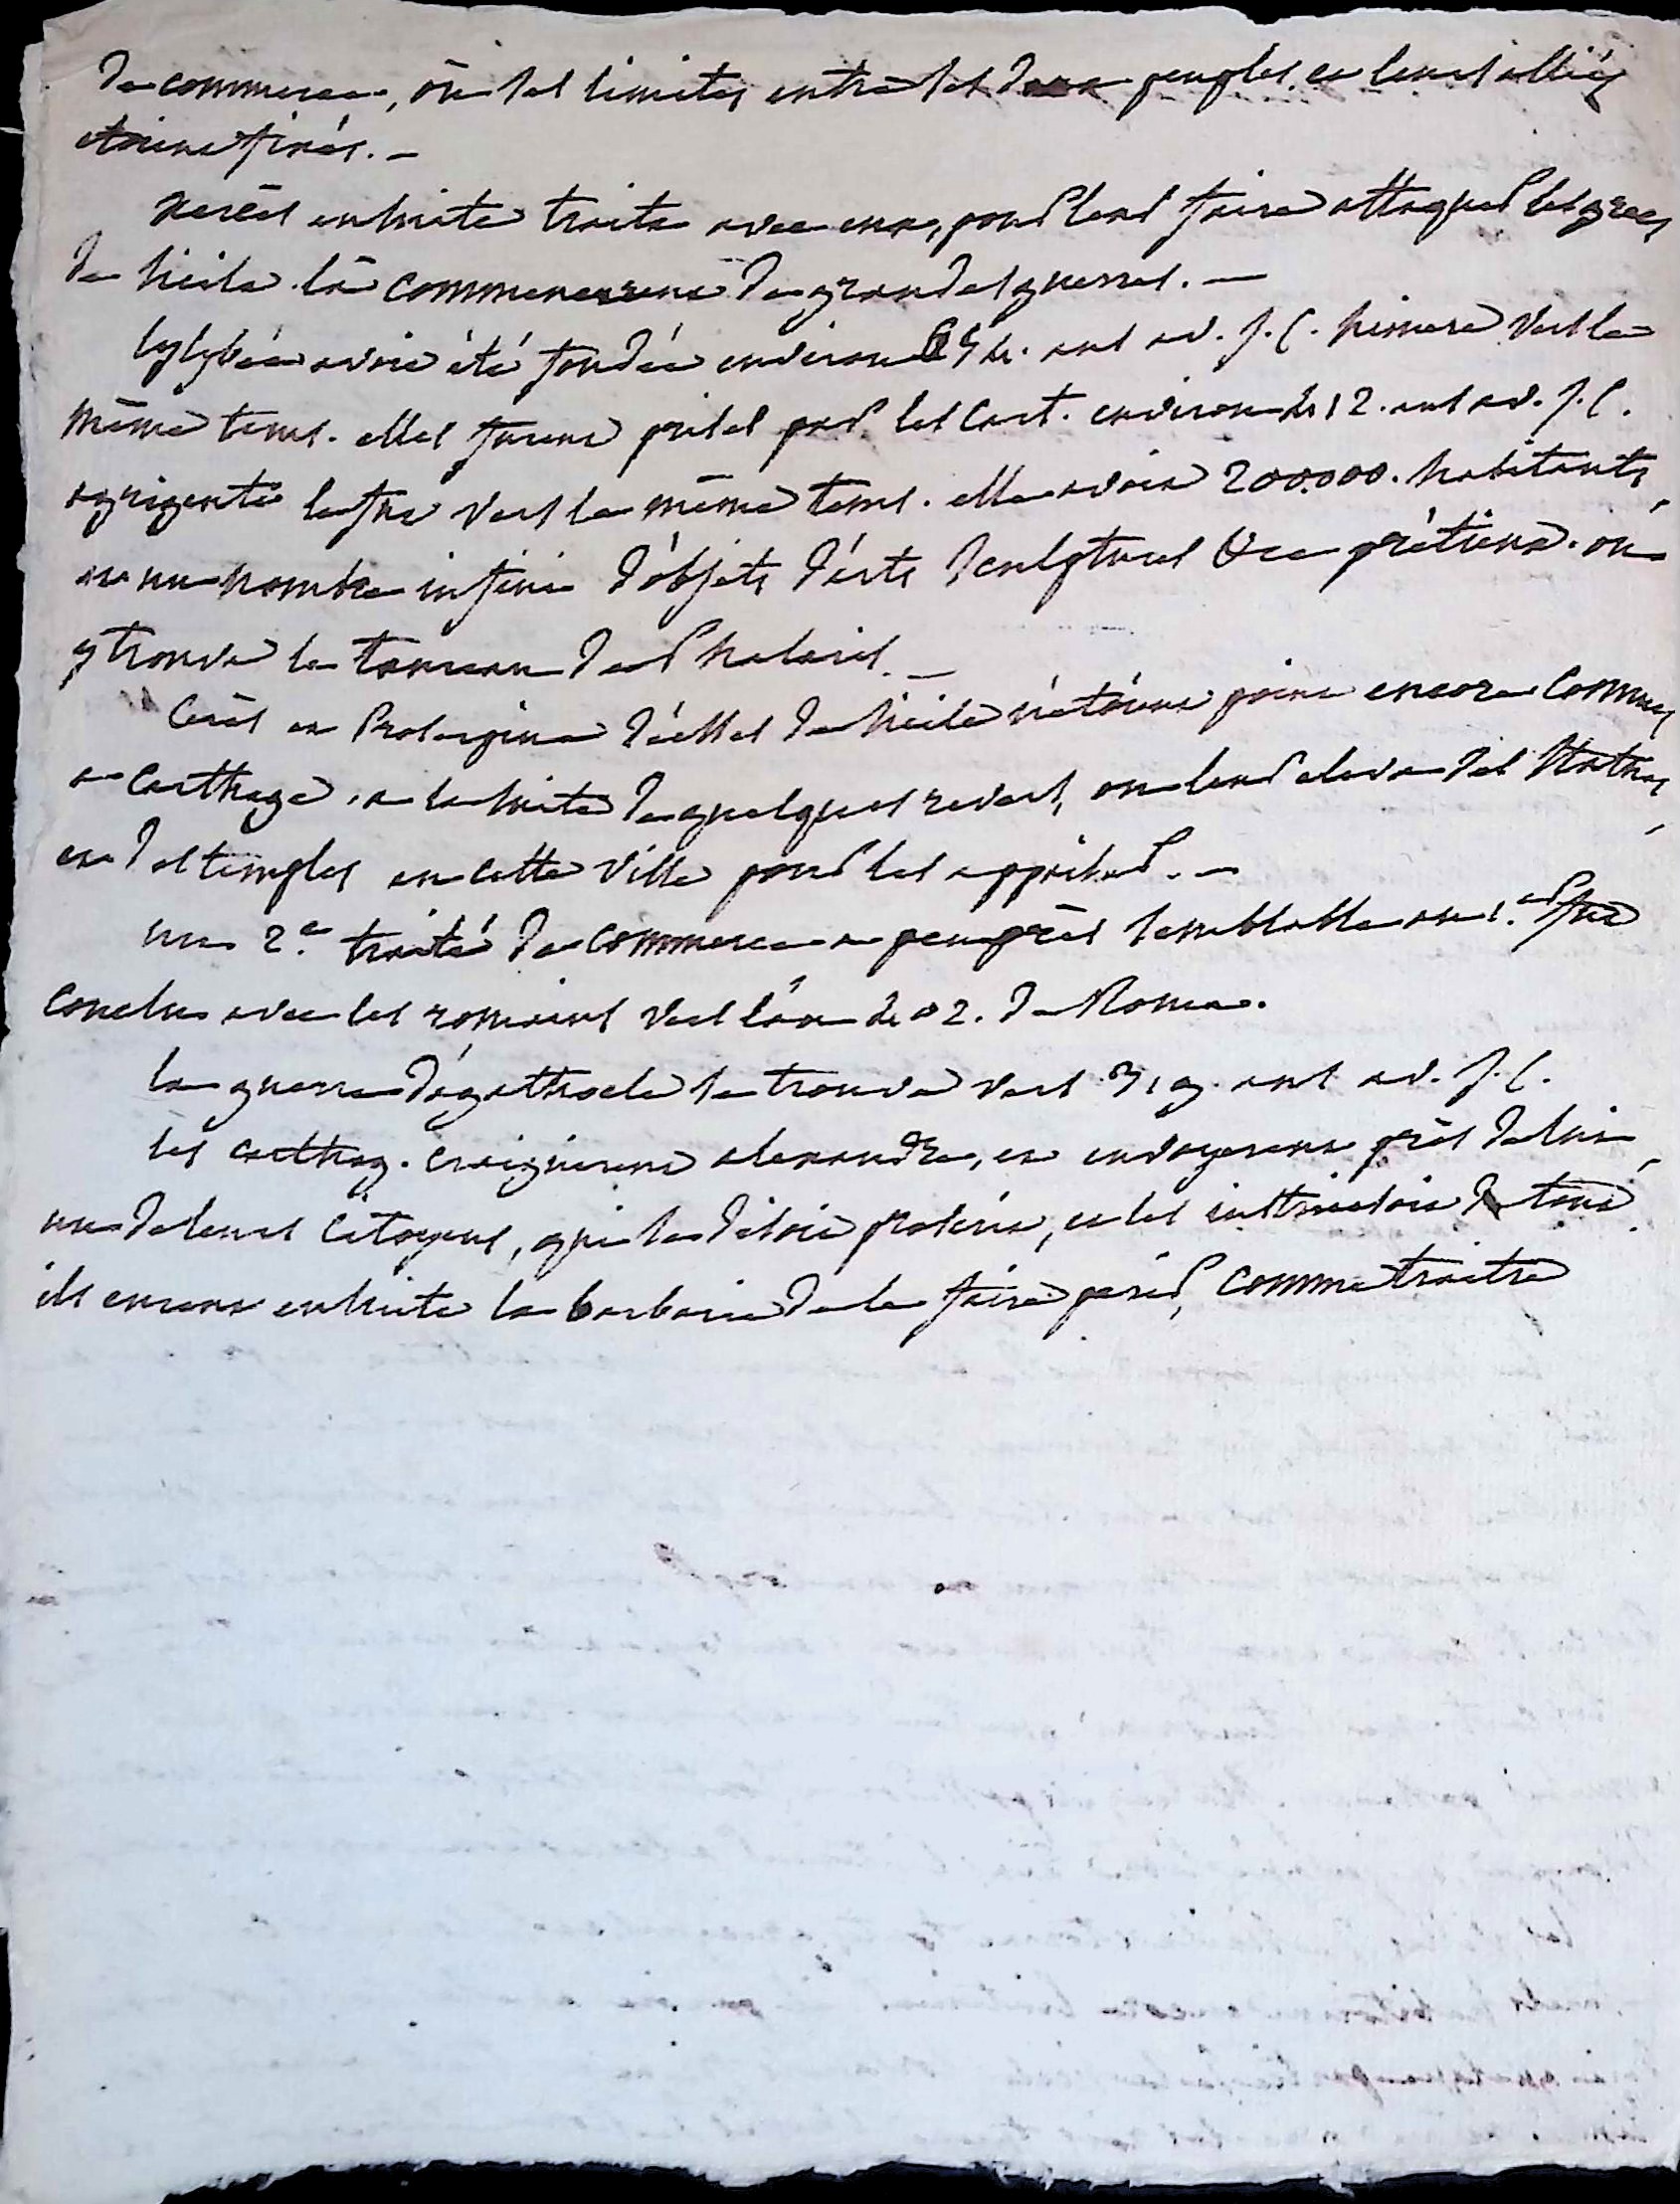 de commerce, où les limites entre les deux peuples et leurs alliés
étoient fixés. –
Xerces ensuite traita avec eux, pour leur faire attaquer les grecs
de sicile. là commencerent de grandes guerres. –
lylybée avoit été fondée environ 654. ans av. J. C. himere vers le
même tems. elles furent prises par les Cart. environ 412. ans av. J. C.
agrigente le fut vers le même tems. elle avoit 200.000. habitants,
et un nombre infini d'objets d'arts sculptures &c. prétieux. on
y trouva le taureau de Phalaris. –
Cerès et Proserpine déesses de sicile n'étoient point encore connues
a Carthage. a la suite de quelques revers, on leur eleva des statues,
et des temples en cette ville pour les appaiser. –
un 2.e traité de commerce a peu près semblable au 1.er fut
conclu avec les romains vers l'an 402. de Rome.
la guerre d'agathocle se trouve vers 319. ans av. J. C.
les carthag. craignirent alexandre, et envoyerent près de lui
un de leurs citoyens, qui se disoit proscrit, et les instruisoit de tout.
ils eurent ensuite la barbarie de le faire perir, comme traitre